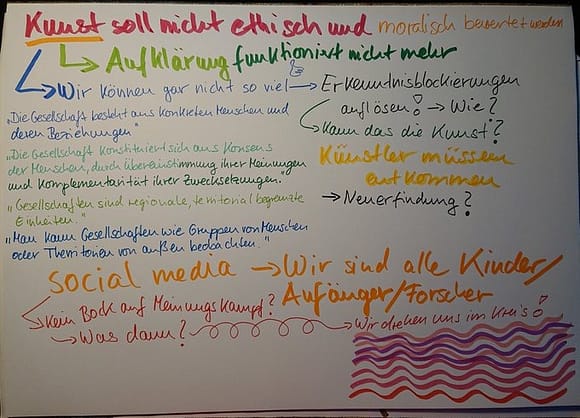 Kunst soll nicht ethisch und moralisch bewertet werden
Aufklärung funktioniert nicht mehr
Wir können gar nicht so viel → Erkenntnisblockierungen
auflösen! → Wie?
Kann das die Kunst?
„Die Gesellschaft besteht aus konkreten Menschen und
deren Beziehungen"
„Die Gesellschaft konstituiert sich aus Konsens
der Menschen, durch Übereinstimmung ihrer Meinungen
und Komplementarität ihrer Zwecksetzungen."
„Gesellschaften sind regionale, territorial begrenzte
Einheiten."
„Man kann Gesellschaften wie Gruppen von Menschen
oder Therritorien von außen beobachten."
Künstler müssen
entkommen
→ Neuerfindung?
Social media → Wir sind alle Kinder/
Anfänger/Forscher
Kein Bock auf Meinungskampf?
→ Was dann? → Wir drehen uns im Kreis!